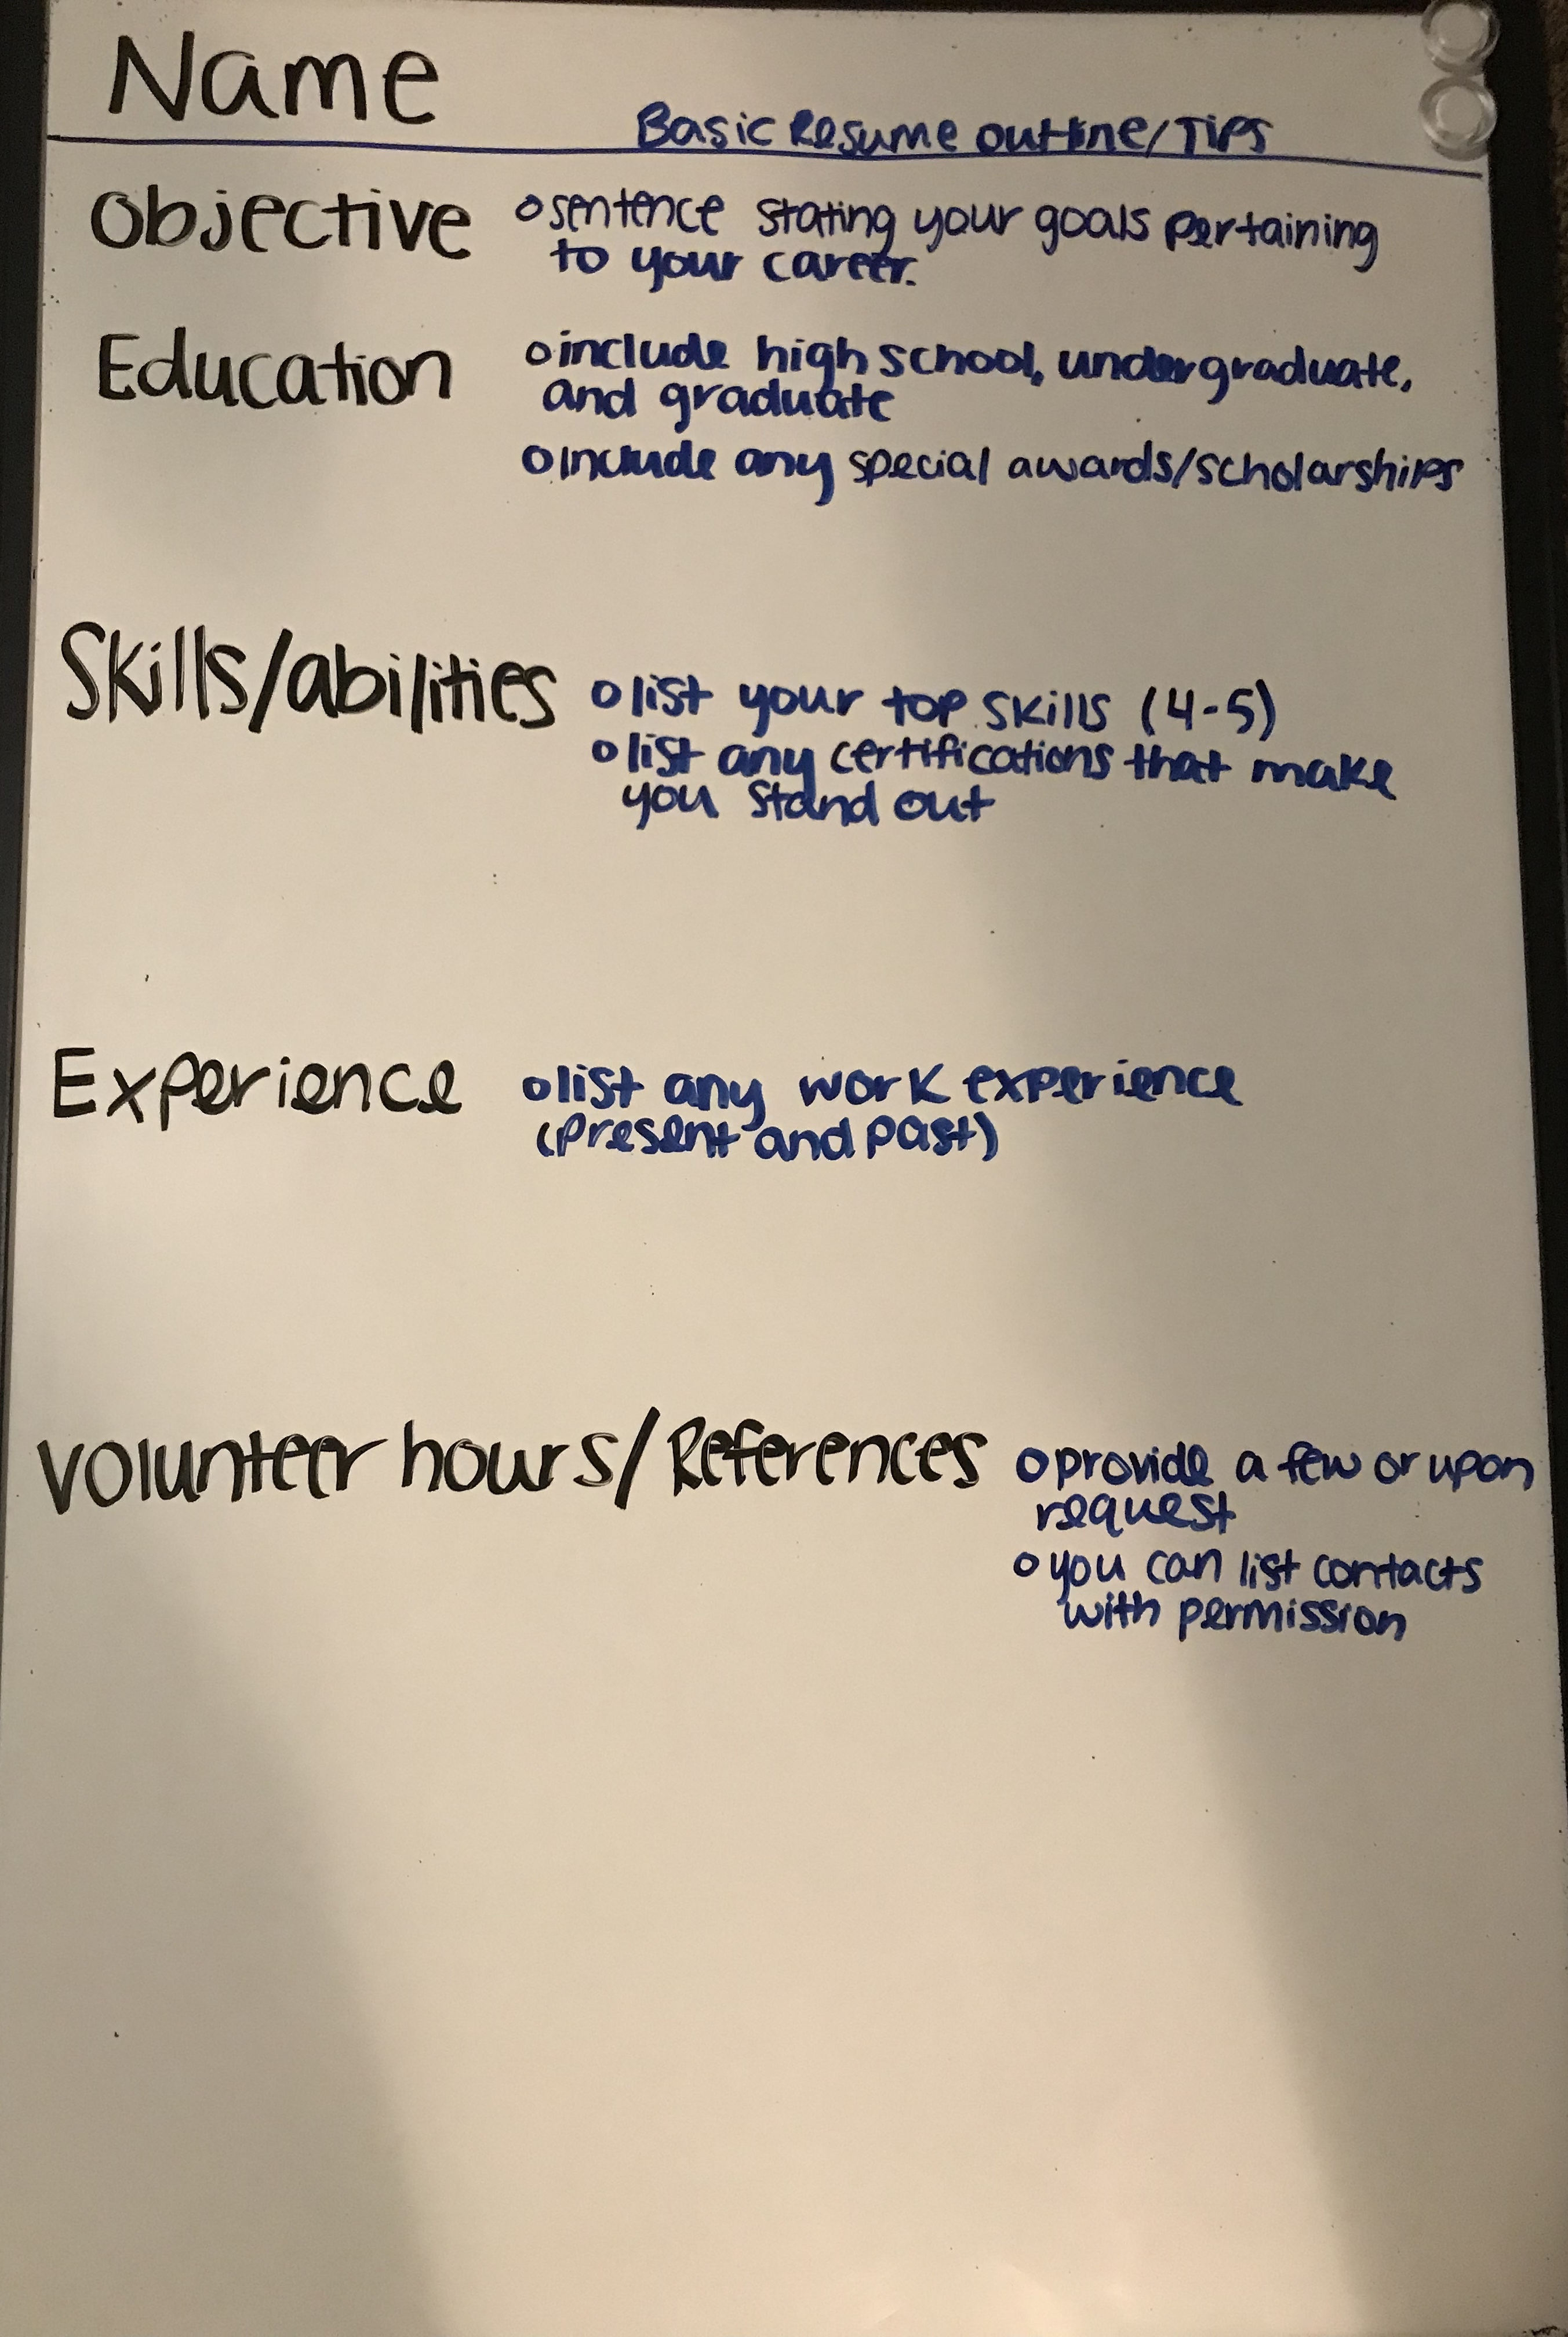 Name
Basic Resume outline/Tips
Objective
o sentence stating your goals pertaining
to your career.
Education
o include high school, undergraduate,
and graduate
o include any special awards/scholarships
Skills/abilities
o list your top skills (4-5)
o list any certifications that make
you stand out
Experience
o list any work experience
(present and past)
Volunteer hours/References
o provide a few or upon
request
o you can list contacts
with permission